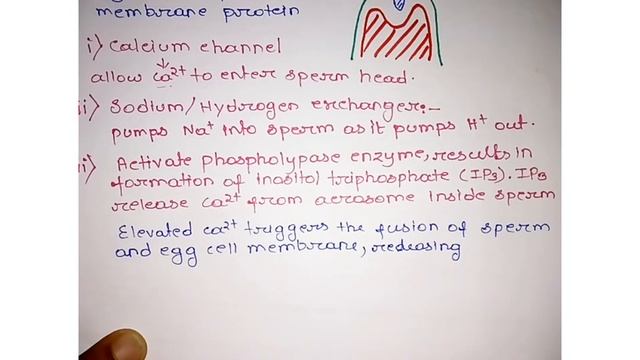 membrane protein
i) Calcium channel
allow Ca2+ to enter sperm head.
ii) Sodium/Hydrogen exchanger:-
pumps Na+ into sperm as it pumps H+ out.
ii) Activate phospholypase enzyme, results in
formation of inositol triphosphate (IP3). IP3
release Ca2+ from acrosome inside sperm
Elevated Ca2+ triggers the fusion of sperm
and egg cell membrane, redeasing